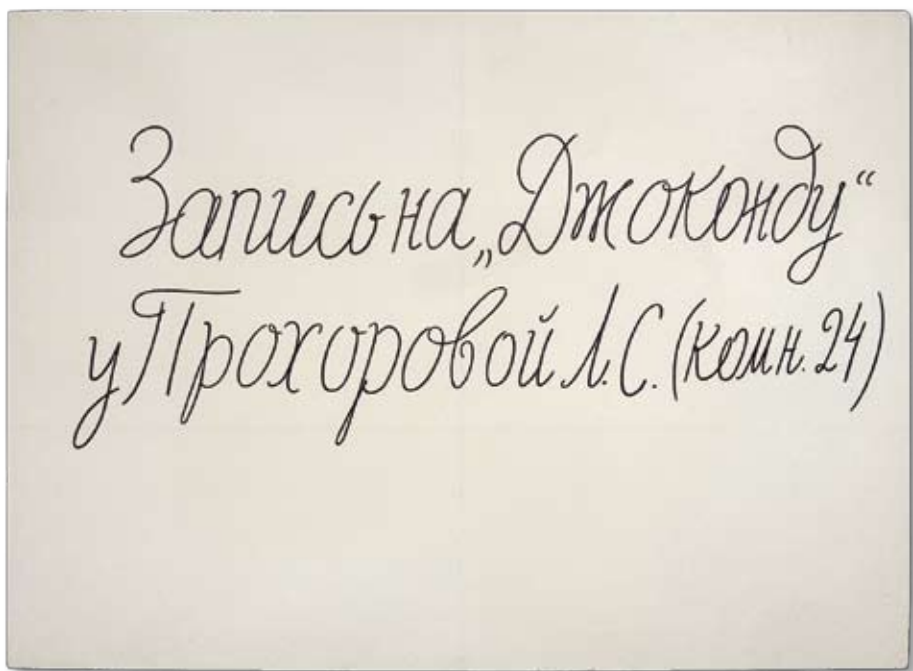 Запись на „Джоконду“
у Прохоровой Л.С. (комн. 24)